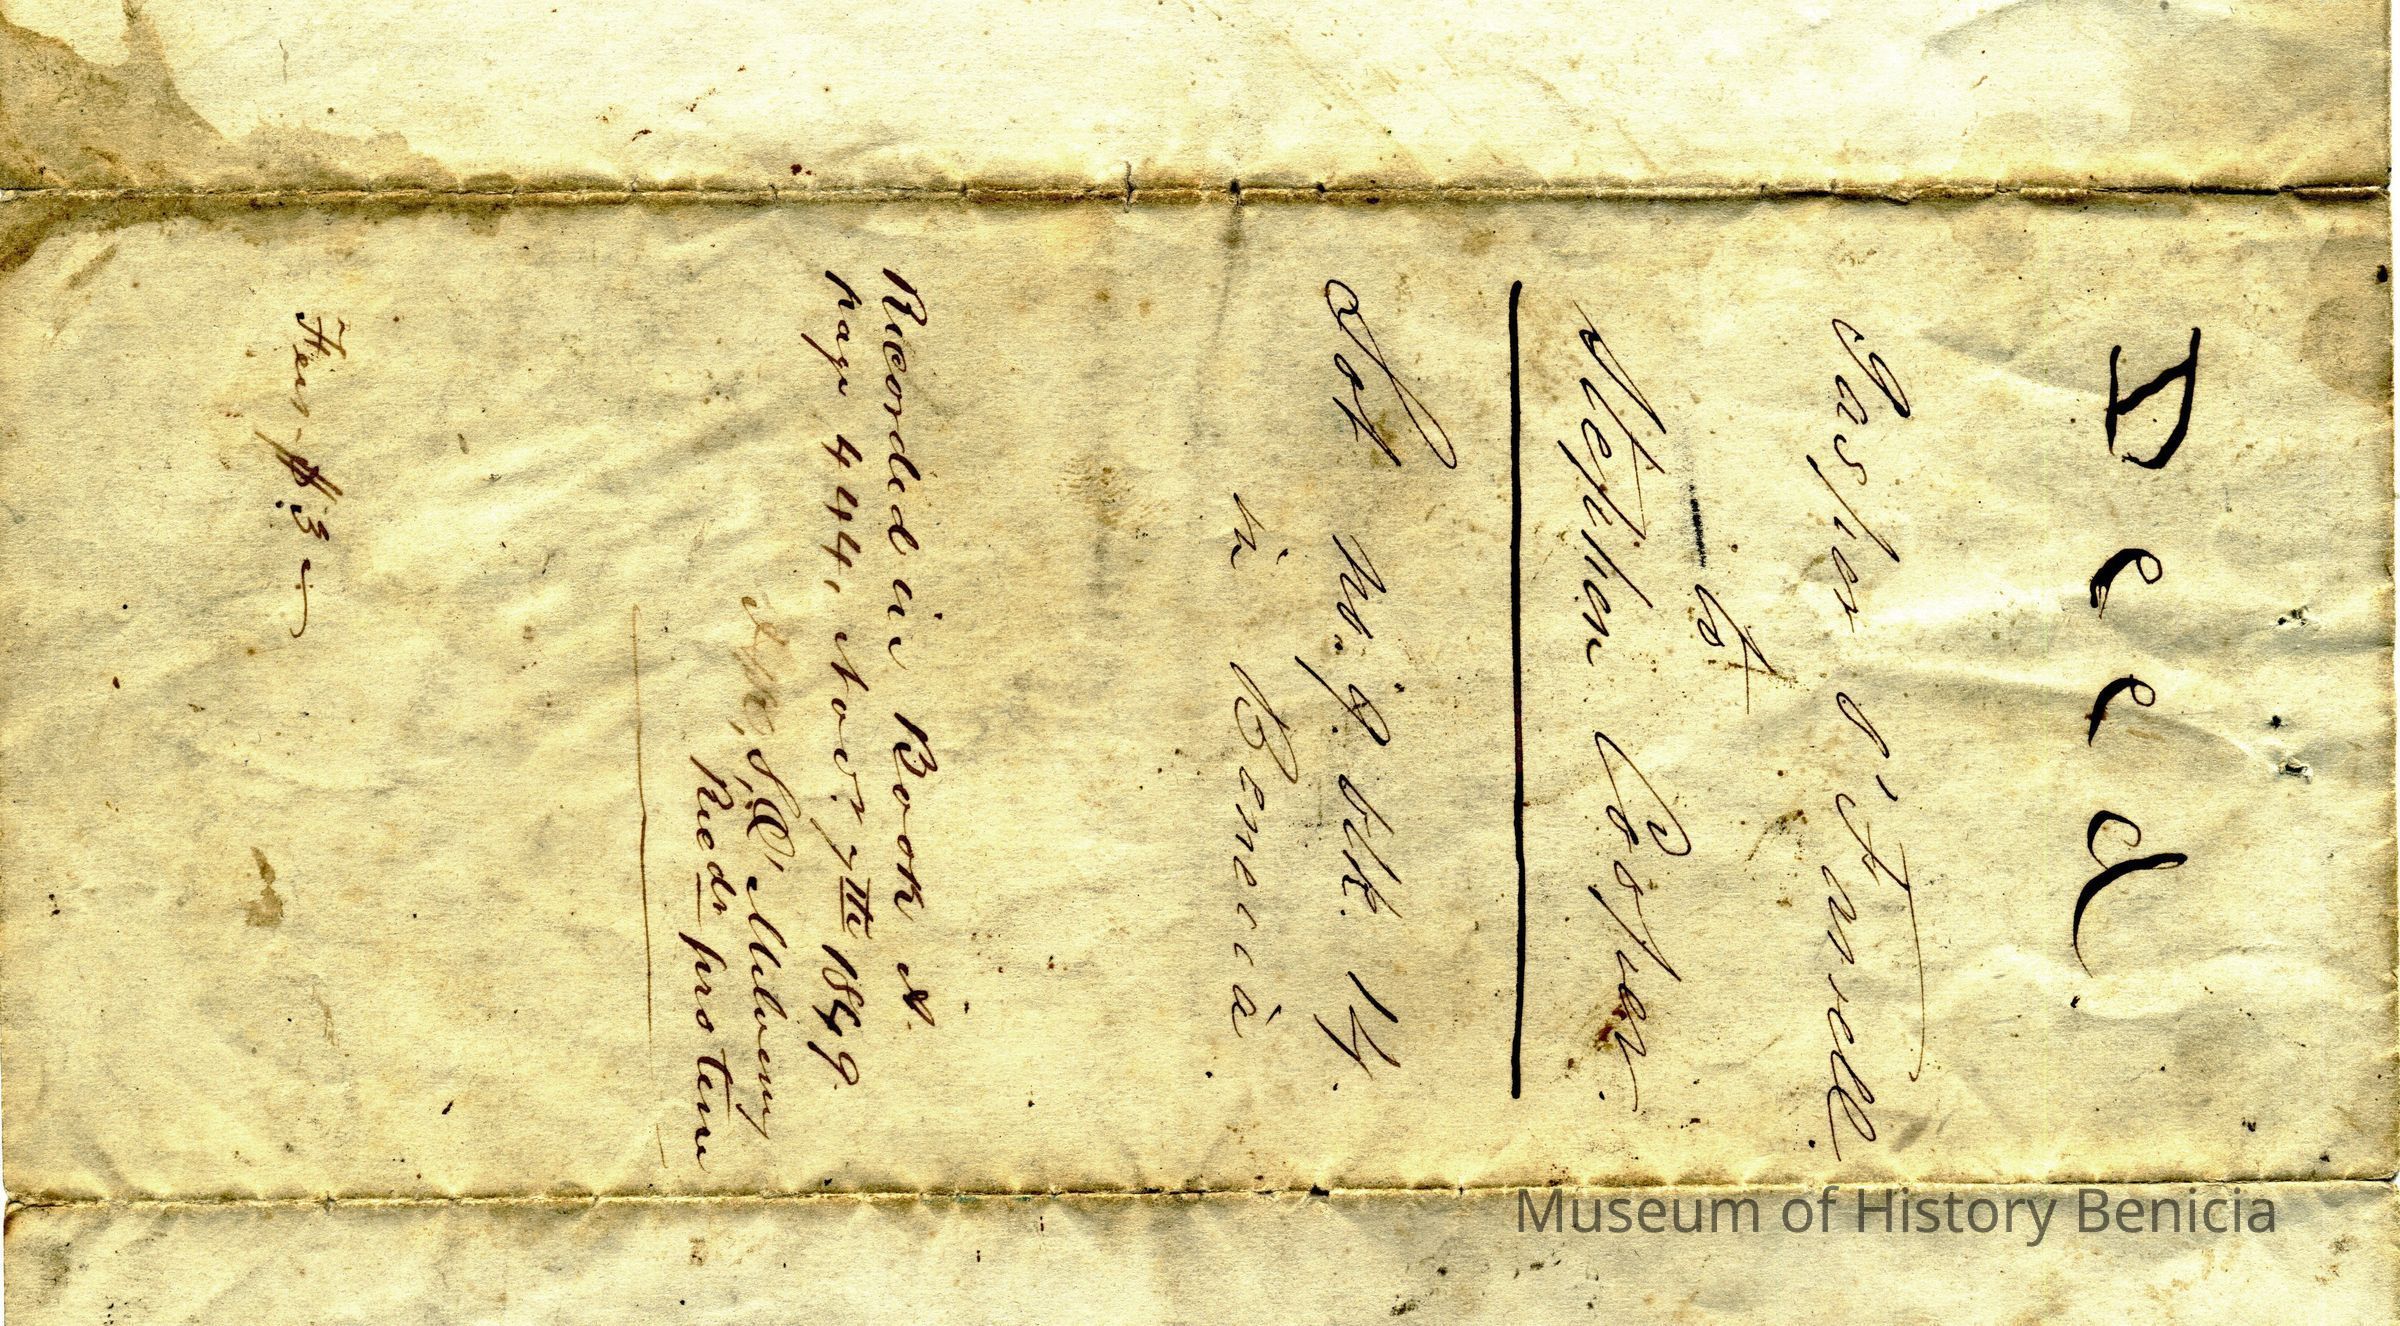 Deed
Gasper O'Farrell
to
Stephen Cooper.
Lot No. 9. blk. 14.
in Benicia.
Recorded in Book A.
page 444, Novr 7th 1849.
Recdr protem
Fees $3
Museum of History Benicia